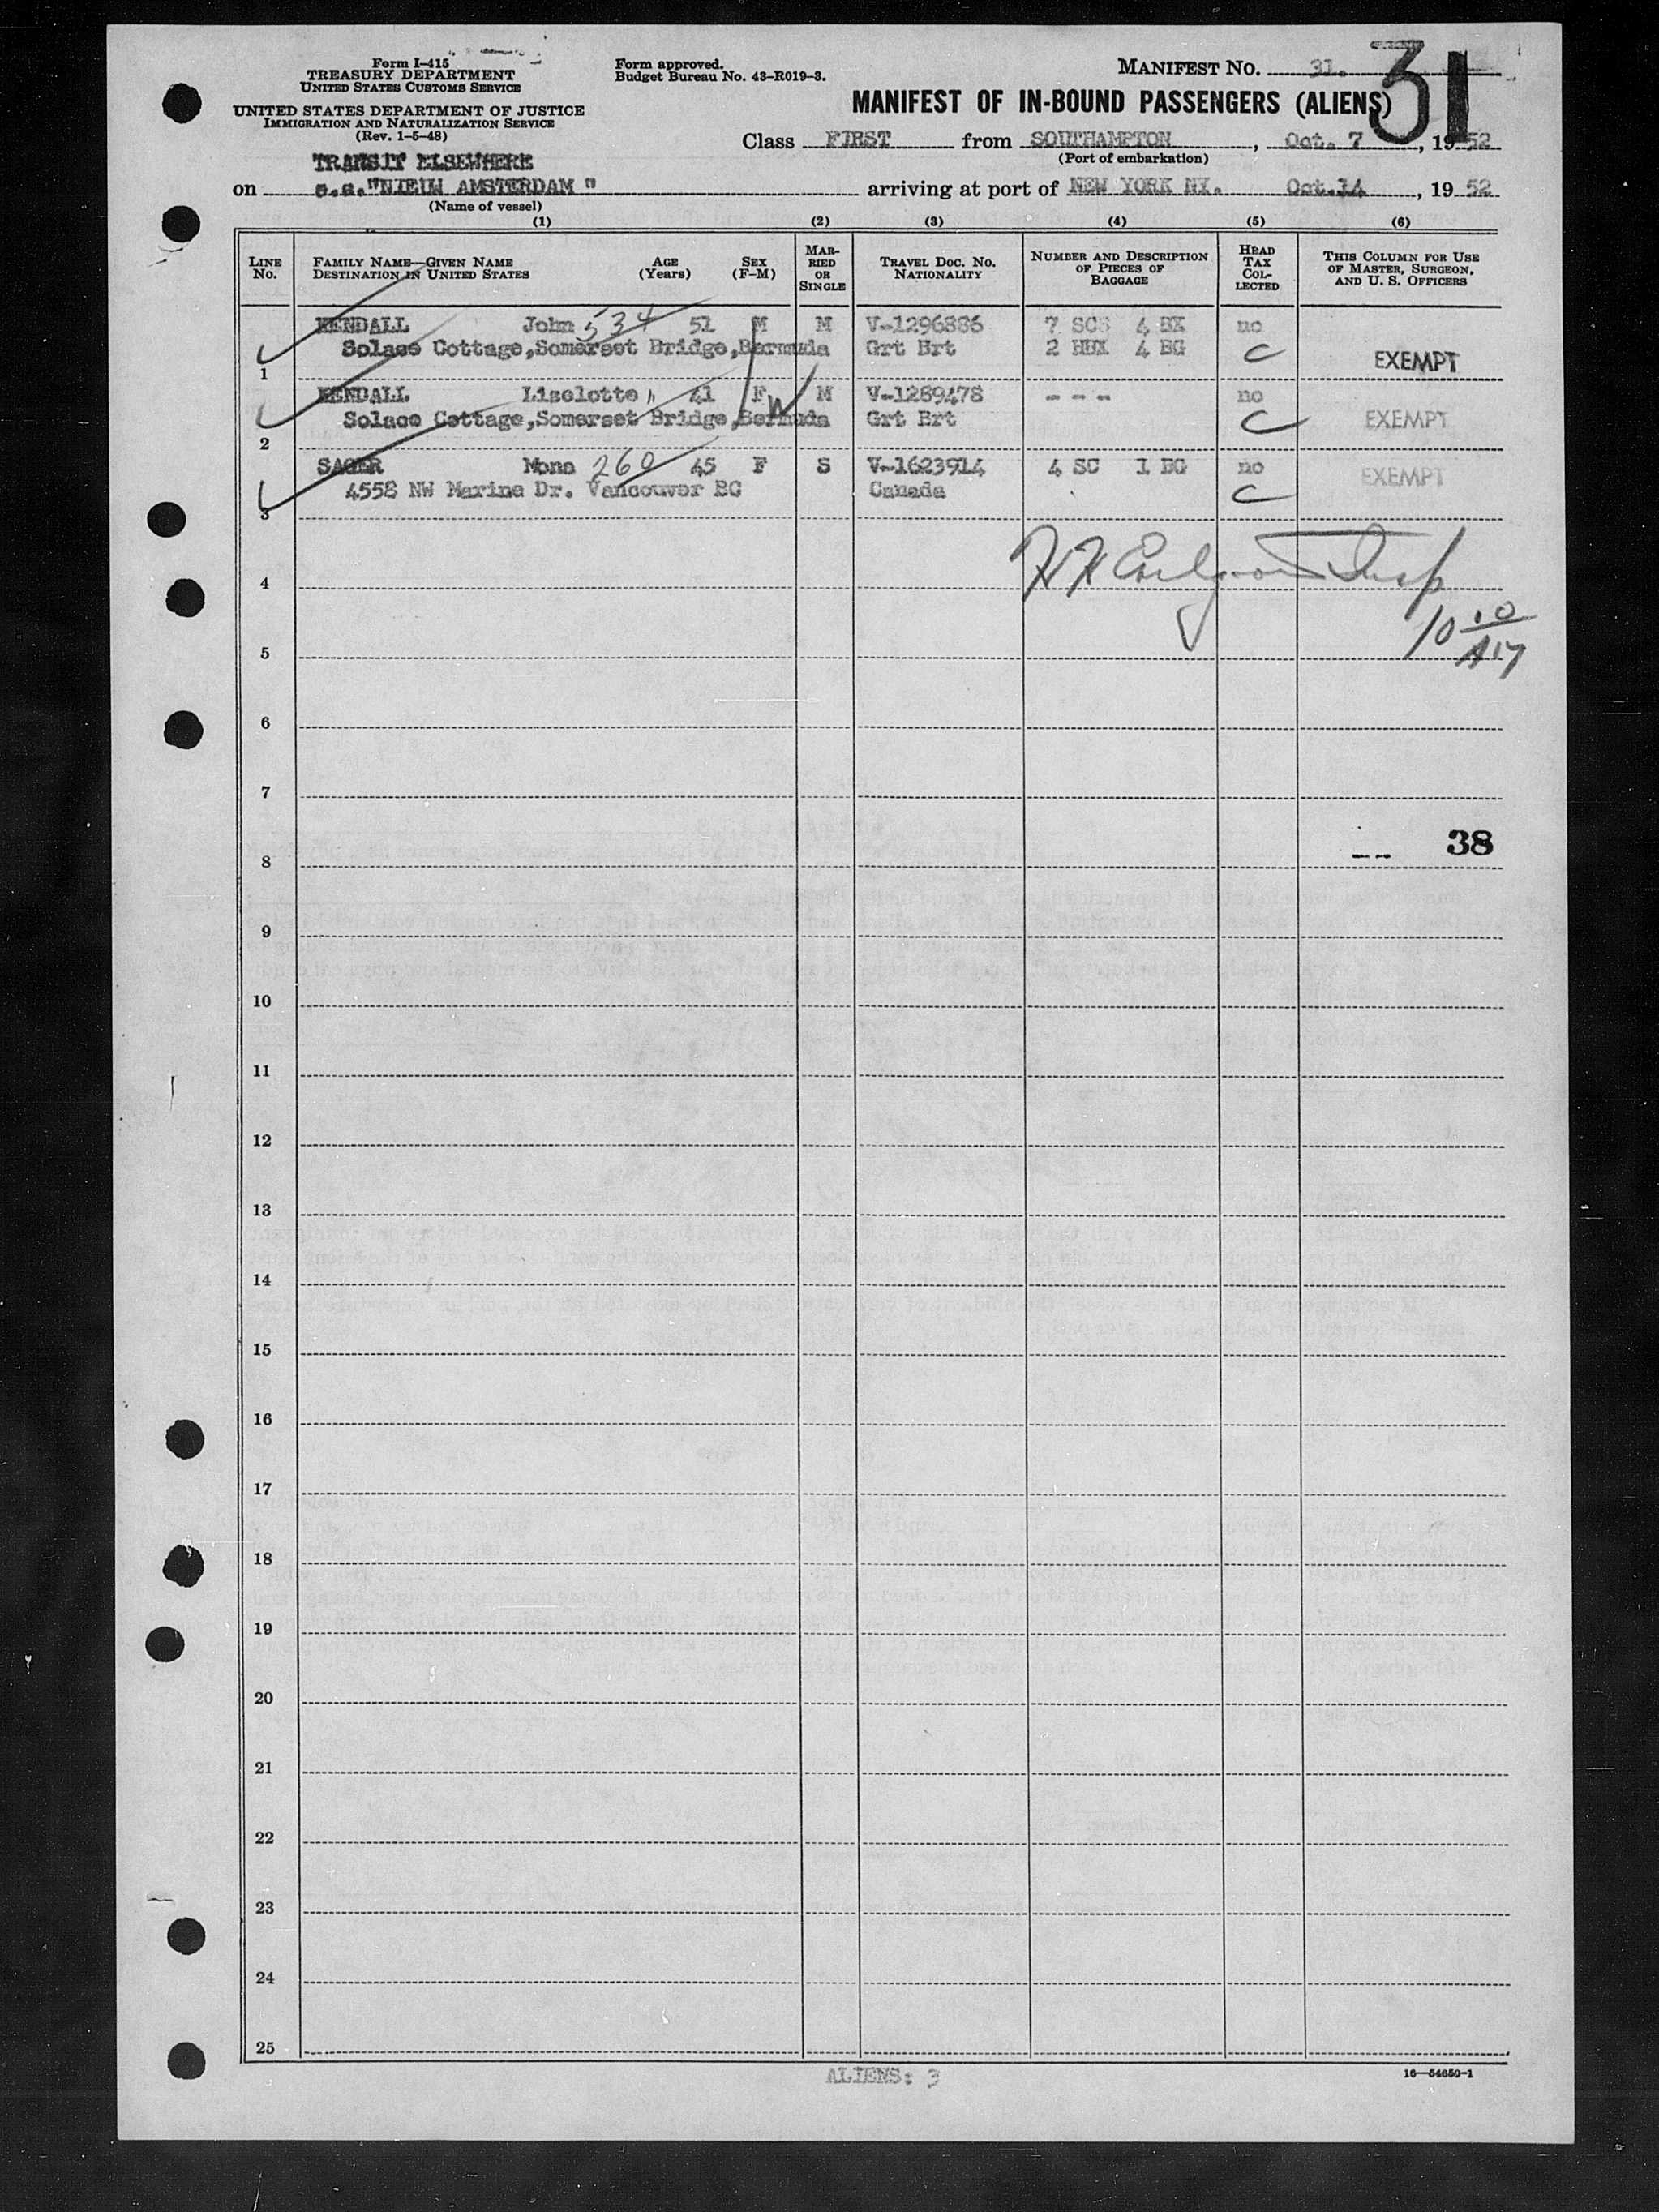 Form I-415
TREASURY DEPARTMENT
UNITED STATES CUSTOMS SERVICE
UNITED STATES DEPARTMENT OF JUSTICE
IMMIGRATION AND NATURALIZATION SERVICE
(Rev. 1-5-48)
Form approved.
Budget Bureau No. 43-R019-3.
MANIFEST NO. 31.
31
MANIFEST OF IN-BOUND PASSENGERS (ALIENS)
Class FIRST from SOUTHAMPTON, Oct. 7, 1952
(Port of embarkation)
TRANSIT ELSEWHERE
on s.s."NIEUW AMSTERDAM " arriving at port of NEW YORK NY. Oct.14, 1952
(Name of vessel)
(1) (2) (3) (4) (5) (6)
LINE No. FAMILY NAME—GIVEN NAME DESTINATION IN UNITED STATES AGE (Years) SEX (F-M) MARRIED OR SINGLE TRAVEL DOC. NO. NATIONALITY NUMBER AND DESCRIPTION OF PIECES OF BAGGAGE HEAD TAX COLLECTED THIS COLUMN FOR USE OF MASTER, SURGEON, AND U. S. OFFICERS
KENDALL John 534 51 M M V-1296886 7 SCS 4 BX no
Solace Cottage,Somerset Bridge,Bermuda Grt Brt 2 HBX 4 BG C EXEMPT
1
KENDALL Liselotte " 41 F W M V-1289478 - - - no
Solace Cottage,Somerset Bridge,Bermuda Grt Brt C EXEMPT
2
SAGER Mona 260 45 F S V-1623914 4 SC 1 BG no EXEMPT
4558 NW Marine Dr. Vancouver BC Canada C
3
4
10 10
5
6
7
38
8
9
10
11
12
13
14
15
16
17
18
19
20
21
22
23
24
25
ALIENS: 3
16—54650-1